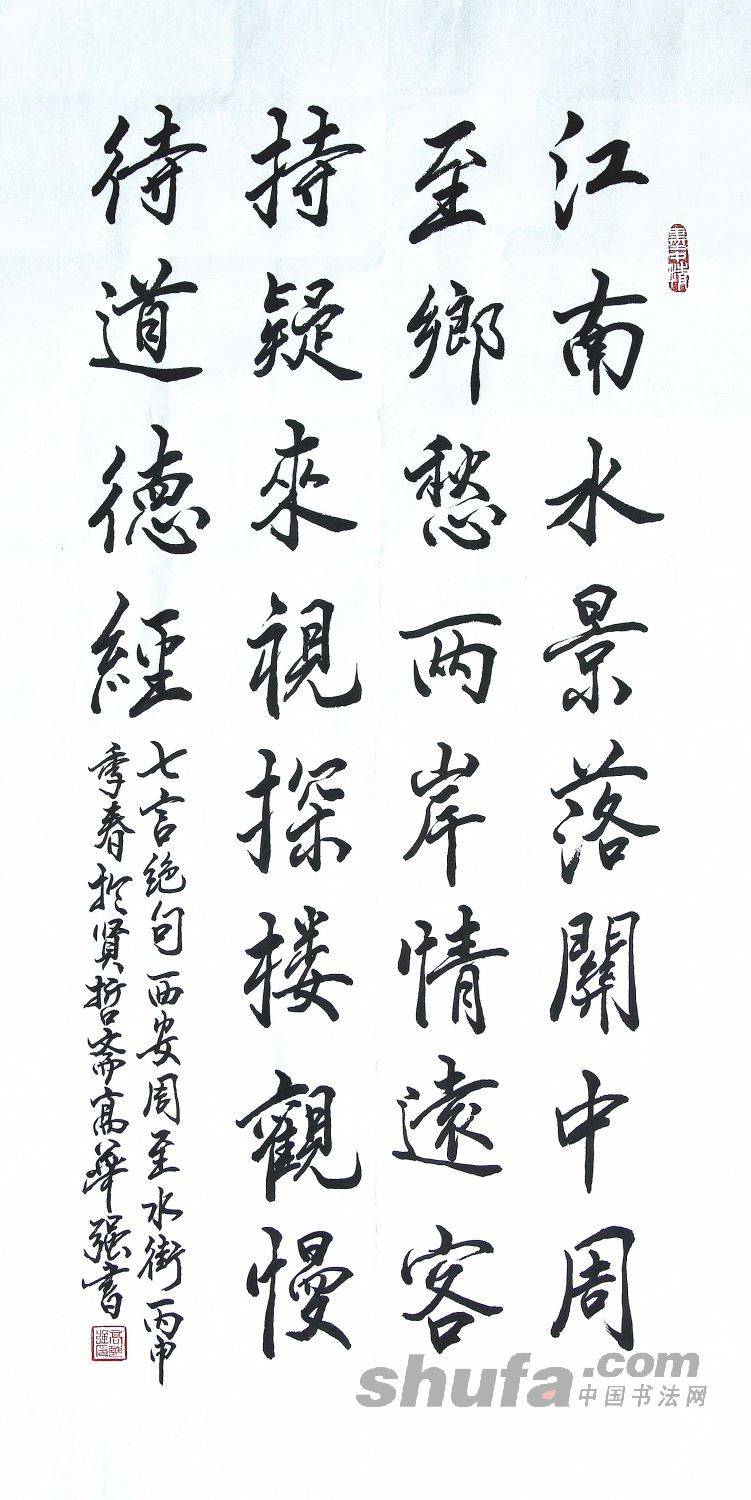 江南水景落關中周
至鄉愁两岸情遠客
持疑來視探楼觀慢
待道德經
七言绝句西安周至水街丙申
季春於贤哲斋高華强書
shufa.com
中国书法网